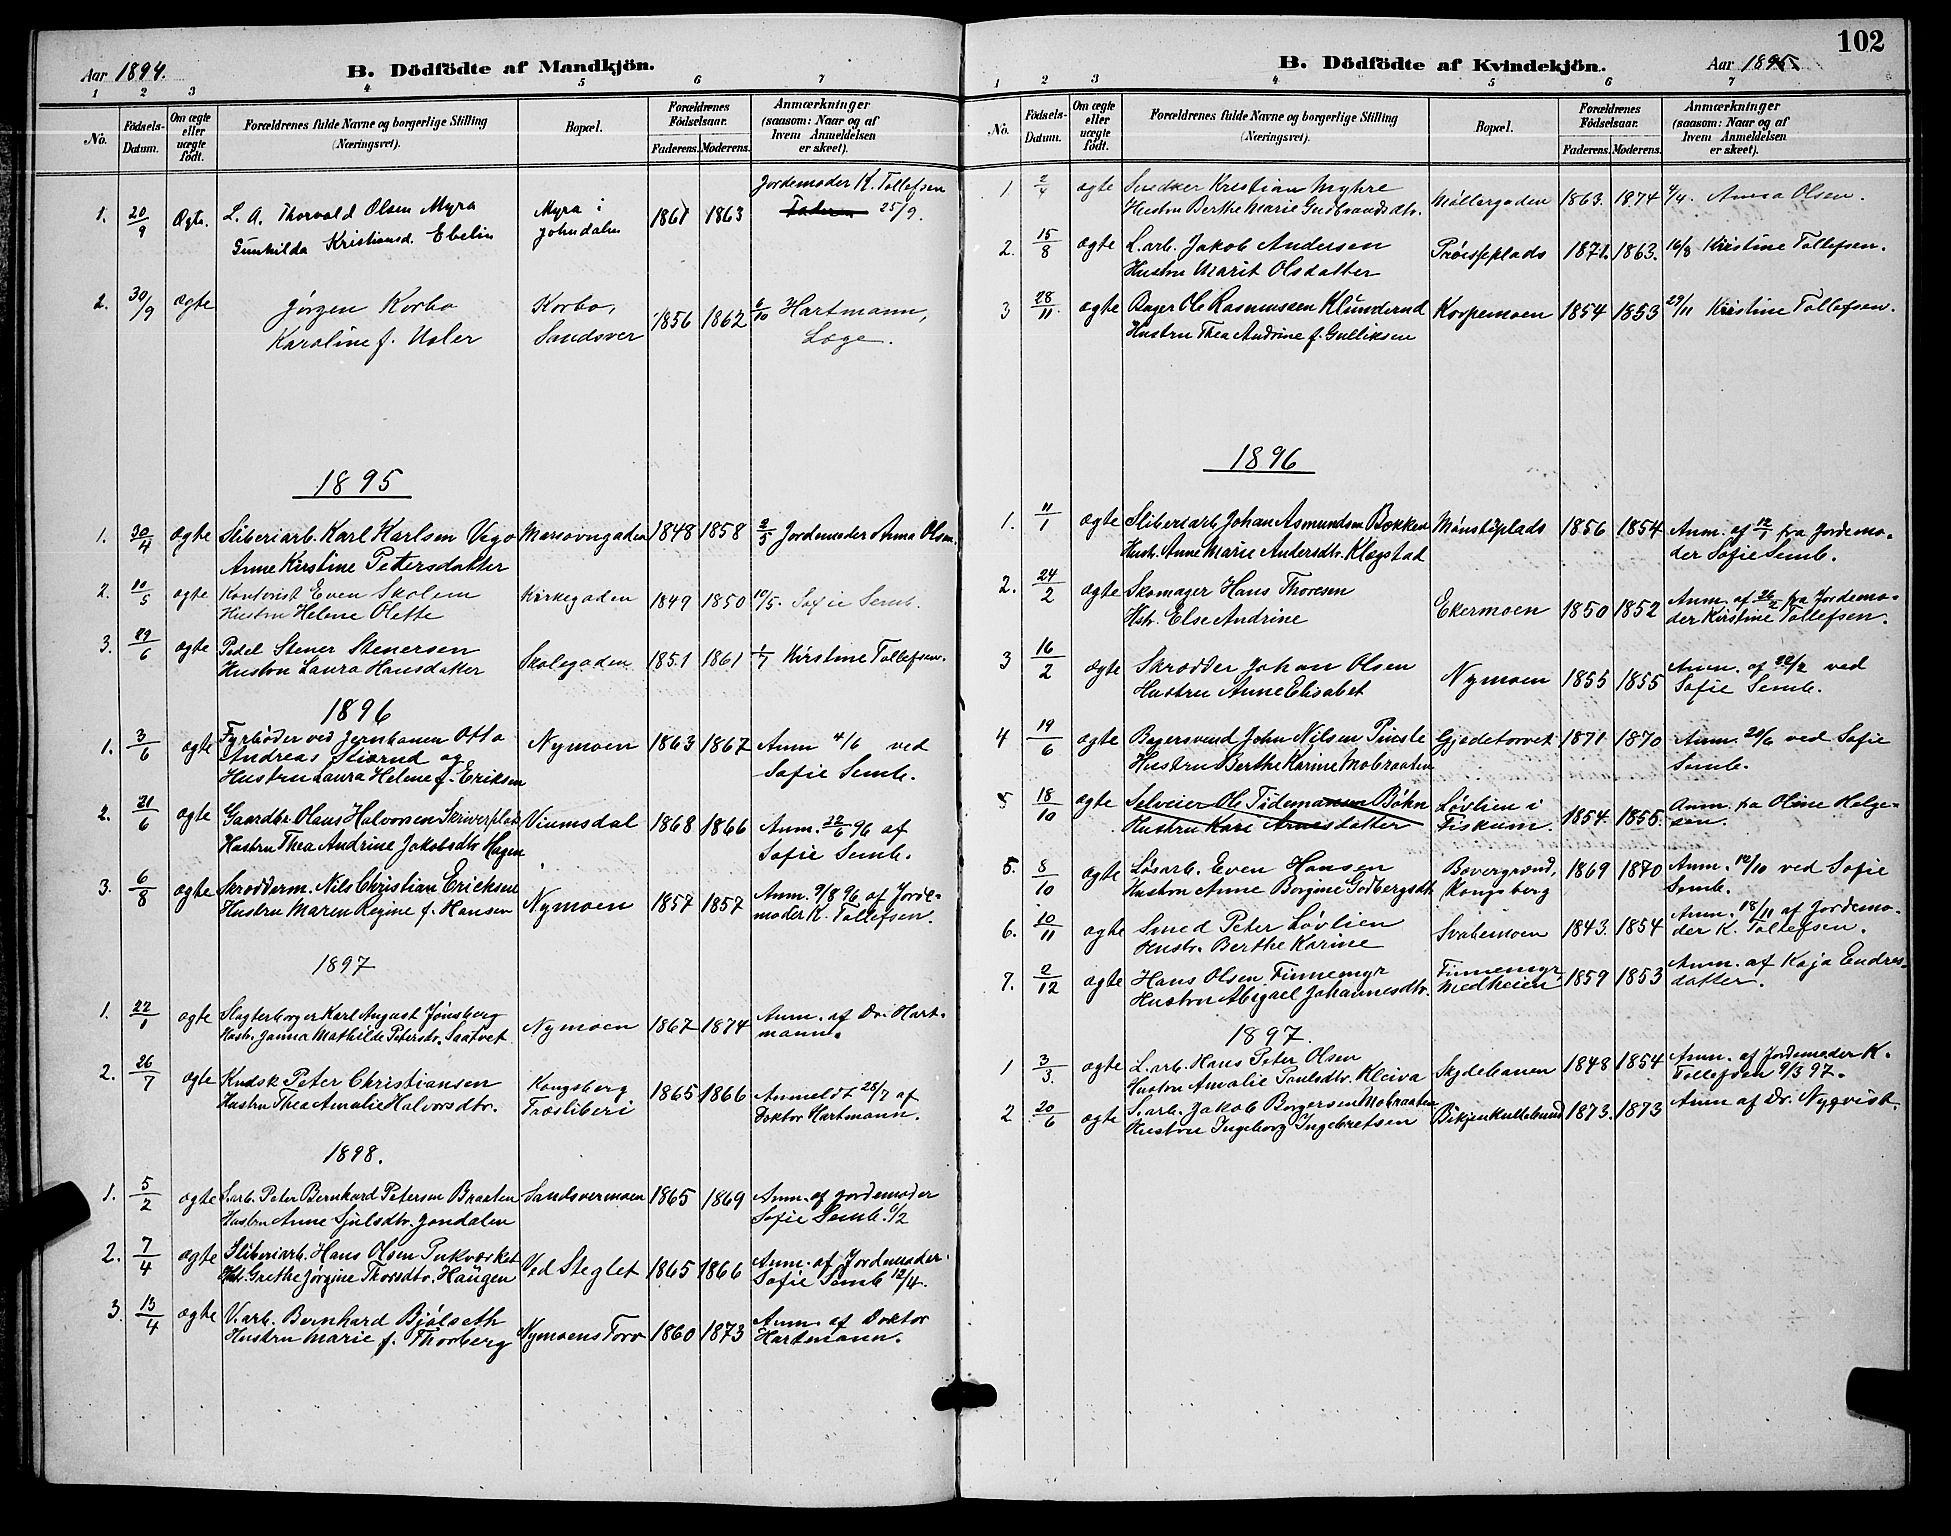 Aar 1894.
B. Dödfödte af Mandkjön.
1 2 3 4 5 6 7
No.
Födsels-Datum.
Om ægte eller uægte født.
Forældrenes fulde Navne og borgerlige Stilling
(Næringsvei).
Bopæl.
Forældrenes Fødselsaar.
Faderens. Moderens.
Anmærkninger
(saasom: Naar og af
hvem Anmeldelsen
er skeet).
Jordemoder K. Tollefsen
1. 20/9 Ægte. L. A. Thorvald Olsen Myra Myra i 1861 1863 Faderen 25/9.
Gunhilda Kristiansd. Ebelin Johndalen
2. 30/9 ægte Jørgen Korbo Korbo, 1856 1862 6/10 Hartmann,
Karoline f. Usler Sandsver Læge.
1895
1. 30/4 ægte Sliberiarb. Karl Karlsen Vego 1848 1858 2/5 Jordemoder Anna Olsen.
Anne Kirstine Petersdatter
2. 10/5 ægte Kontorist Even Skolem Kirkegaden 1849 1850 10/5. Sofie Semb.
Hustru Helene Olette
3. 29/6 ægte Pedel Stener Stenersen Skolegaden 1851 1861 1/7 Kirstine Tollefsen.
Hustru Laura Hansdatter
1896
1. 3/6 ægte Fyrbøder ved Jernbanen Otto Nymoen 1863 1867 Anm 4/6 ved
Andreas Stiørud og Sofie Semb.
Hustru Laura Helene f. Eriksen
2. 21/6 ægte Gaardbr. Olaus Halvorsen Skriverplads Viumsdal 1868 1866 Anm. 22/6 96 af
Hustru Thea Andrine Jakobsdtr. Hagen Sofie Semb.
3. 6/8 ægte Skrædderm. Nils Christian Ericksen Nymoen 1857 1857 Anm. 9/8 96 af Jorde-
Hustru Maren Regine f. Hansen moder K. Tollefsen.
1897
1. 22/1 ægte Slagterborger Karl August Jønsberg Nymoen 1867 1874 Anm. af Dr. Hart-
Hustr. Janna Mathilde Petersdtr. Saatvet mann.
2. 26/7 ægte Kudsk Peter Christiansen Kongsberg 1865 1866 Anmeldt 28/7 af
Hustru Thea Amalie Halvorsdtr. Træsliberi Doktor Hartmann.
1898.
1. 5/2 ægte S.arb. Peter Bernhard Petersen Braaten Sandsvermoen 1865 1869 Anm. af Jordemoder
Hustru Anne Sjulsdtr. Jondalen Sofie Semb. 6/2
2. 7/4 ægte Sliberiarb. Hans Olsen Pukværket Ved Steglet 1865 1866 Anm. af Jordemoder
Hstr Grethe Jørgine Thorsdtr. Haugen Sofie Semb 12/4.
3. 13/4 ægte V.arb. Bernhard Bjølseth Nymoens Torv 1860 1873 Anm. af Doktor
Hustru Marie f. Thorberg Hartmann.
102
B. Dödfödte af Kvindekjön.
Aar 1895.
1 2 3 4 5 6 7
No.
Födsels-Datum.
Om ægte eller uægte født.
Forældrenes fulde Navne og borgerlige Stilling
(Næringsvei).
Bopæl.
Forældrenes Fødselsaar.
Faderens. Moderens.
Anmærkninger
(saasom: Naar og af
hvem Anmeldelsen
er skeet).
1 2/4 ægte Snedker Kristian Myhre Møllergaden 1863. 1874 4/4. Anna Olsen.
Hustru Berthe Marie Gudbrandsdtr.
2. 15/8 ægte L.arb. Jakob Andersen 1871. 1863. 16/8 Kirstine Tollefsen.
Hustru Marit Olsdatter
3 28/11 ægte Bager Ole Rasmussen Klunderud Korpemoen 1854 1853 29/11 Kirstine Tollefsen.
Hustru Thea Andrine f. Gulliksen
1896
1. 11/1 ægte Sliberiarb. Johan Asmundsen Bækken 1856 1854 Anm. af 12/1 fra Jordemo-
Hustr. Anne Marie Andersdtr. Klogstad der Sofie Semb.
2. 24/2 ægte Skomager Hans Thoresen Ekermoen 1850 1852 Anm. af 26/2 fra Jordemo-
Hstr. Else Andrine der Kirstine Tollefsen.
3 16/2 ægte Skrædder Johan Olsen Nymoen 1855 1855 Anm. af 22/2 ved
Hustru Anne Elisabet Sofie Semb.
4 19/6 ægte Bagersvend John Nilsen Gjedetorvet 1871 1870 Anm. 20/6 ved Sofie
Hustru Berthe Karine Mobraaten Semb.
5 18/10 ægte Selveier Ole Tidemansen Bøhn Løvlien i 1854. 1855. Anm. fra Oline Helge-
Hustru Kari Arnesdatter Fiskum. sen.
5. 8/10 ægte Løsarb. Even Hansen Bævergrend, 1869 1870 Anm. 12/10 ved Sofie
Hustru Anne Borgine Godbergsdt. Kongsberg Semb.
6. 10/11 ægte Smed Peter Løvlien Svabemoen 1843. 1854 Anm. 18/11 af Jordemo-
Hustr. Berthe Karine der K. Tollefsen.
7. 2/12 ægte Hans Olsen Finnemyr Finnemyr 1859 1853 Anm. af Kaja Endres-
Hustru Abigael Johannesdtr. Medheien datter.
1897.
1 3/3. ægte L.arb. Hans Peter Olsen Skydebanen 1848 1854 Anm. af Jordemoder K.
Hustru Amalie Paulsdtr. Kleiva Tollefsen 9/3 97.
2 20/6 ægte S.arb. Jakob Borgersen Mobraaten 1873. 1873 Anm af Dr. Nyqvist.
Hustru Ingeborg Ingebretsen